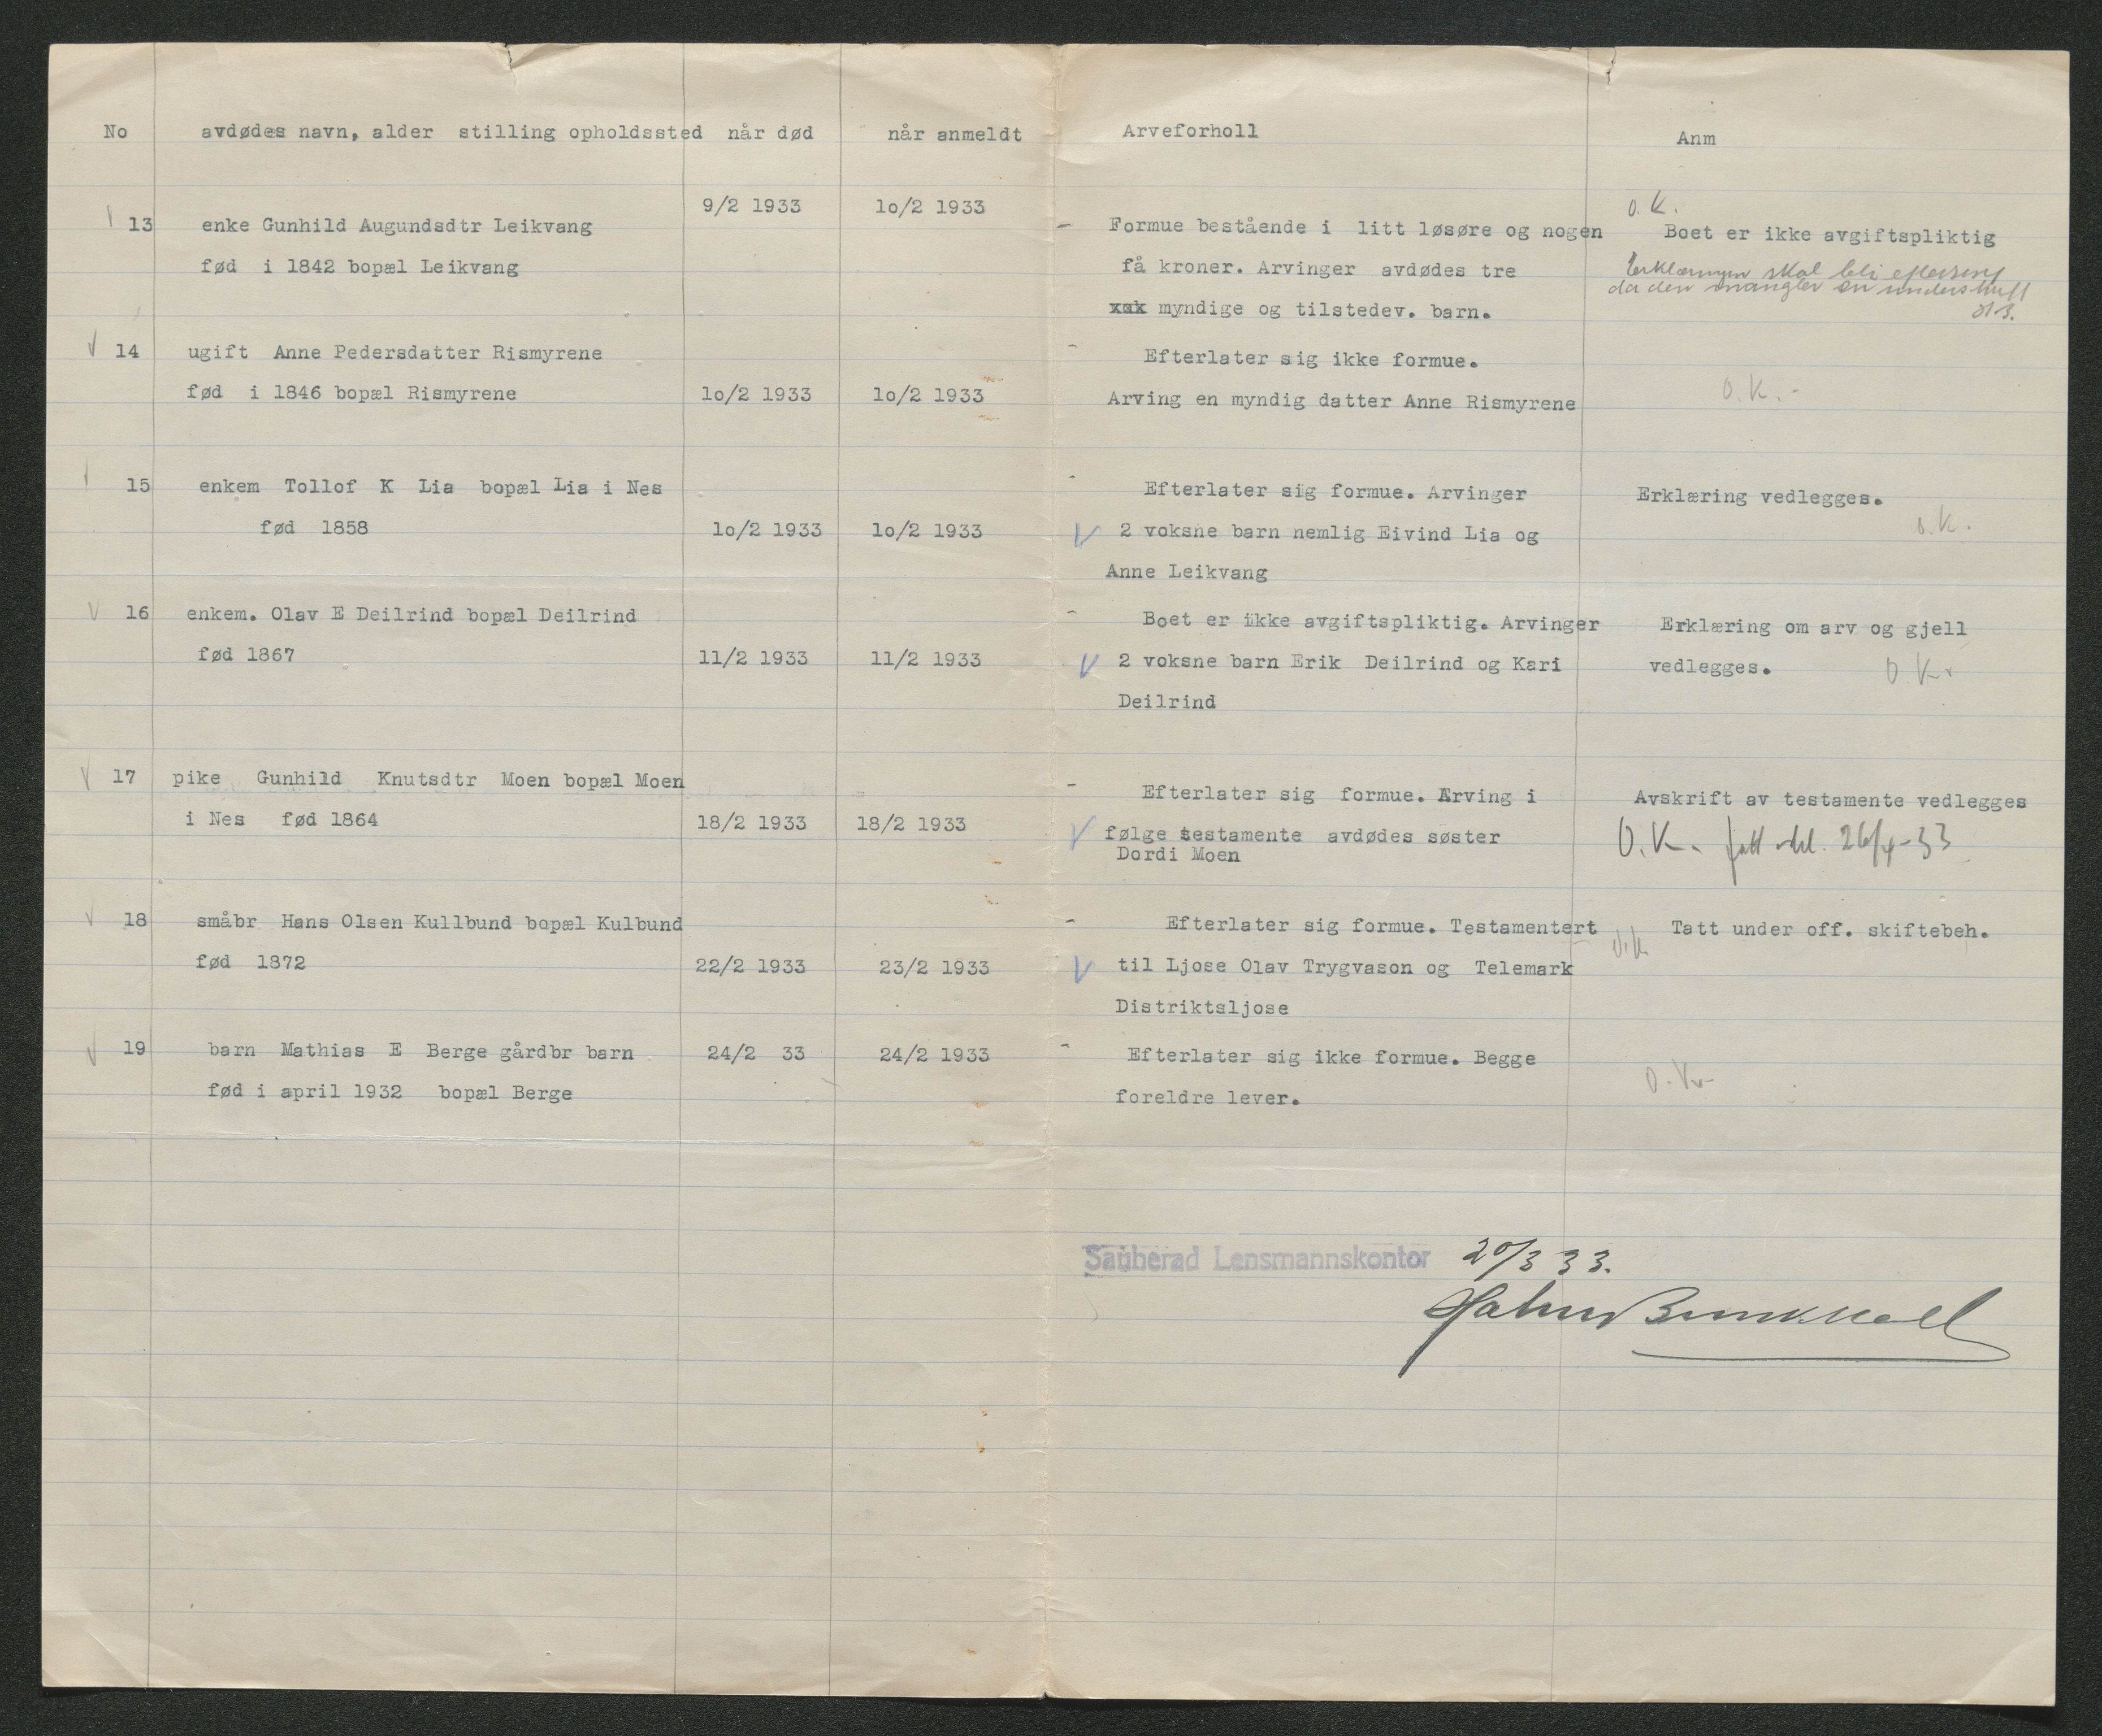 No avdødes navn, alder stilling opholdssted når død når anmeldt Arveforholl Anm
9/2 1933 1o/2 1933 O.K.
13 enke Gunhild Augundsdtr Leikvang - Formue bestående i litt løsøre og nogen Boet er ikke avgiftspliktig
fød i 1842 bopæl Leikvang få kroner. Arvinger avdødes tre Erklæringen skal bli eftersent
da den mangler en underskrift
xak myndige og tilstedev. barn.
14 ugift Anne Pedersdatter Rismyrene - Efterlater sig ikke formue.
fød i 1846 bopæl Rismyrene 1o/2 1933 1o/2 1933 Arving en myndig datter Anne Rismyrene O.K.-
15 enkem Tollof K Lia bopæl Lia i Nes - Efterlater sig formue. Arvinger Erklæring vedlegges.
fød 1858 1o/2 1933 1o/2 1933 2 voksne barn nemlig Eivind Lia og O.K.
Anne Leikvang
16 enkem. Olav E Deilrind bopæl Deilrind - Boet er ikke avgiftspliktig. Arvinger Erklæring om arv og gjell
fød 1867 11/2 1933 11/2 1933 2 voksne barn Erik Deilrind og Kari vedlegges. O.K.
Deilrind
17 pike Gunhild Knutsdtr Moen bopæl Moen - Efterlater sig formue. Arving i Avskrift av testamente vedlegges
i Nes fød 1864 18/2 1933 18/2 1933 følge testamente avdødes søster O.K. 26/4-33
Dordi Moen
18 småbr Hans Olsen Kullbund bopæl Kulbund - Efterlater sig formue. Testamentert O.K. Tatt under off. skiftebeh.
fød 1872 22/2 1933 23/2 1933 til Ljose Olav Trygvason og Telemark
Distriktsljose
19 barn Mathias E Berge gårdbr barn 24/2 33 24/2 1933 - Efterlater sig ikke formue. Begge
fød i april 1932 bopæl Berge foreldre lever. O.K.
Sauherad Lensmannskontor 20/3 33.